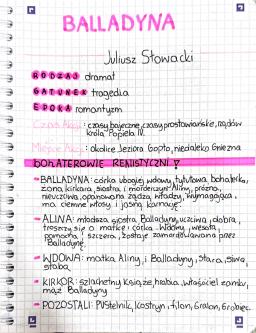 BALLADYNA
Juliusz Słowacki
RODZAJ dramat
GATUNEK tragedia
EPOKA romantyzm
Czas Akcji: czasy bajeczne, czasy prasłowiańskie, rządów
króla Popiela IV.
Miejsce Akcji: okolice Jeziora Gopło, niedaleko Gniezna
BOHATEROWIE REALISTYCZNI
BALLADYNA: córka ubogiej wdowy, tytułowa bohaterka,
żona Kirkora, siostra i morderczyni Aliny, próżna,
nieuczciwa, opanowana żądzą władzy, wymagająca,
ma ciemne włosy i jasną karnację.
ALINA: młodsza siostra Balladyny, uczciwa, dobra,
troszczy się o matkę, córka Wdowy, wesoła,
pomocna, szczera, zostaje zamordowana przez
Balladynę.
WDOWA: matka Aliny i Balladyny, stara, siwa,
słaba,
KIRKOR: szlachetny książę, hrabia, właściciel zamku,
mąż Balladyny
POZOSTALI: Pustelnik, Kostryn, Filon, Gralon, Grabiec.